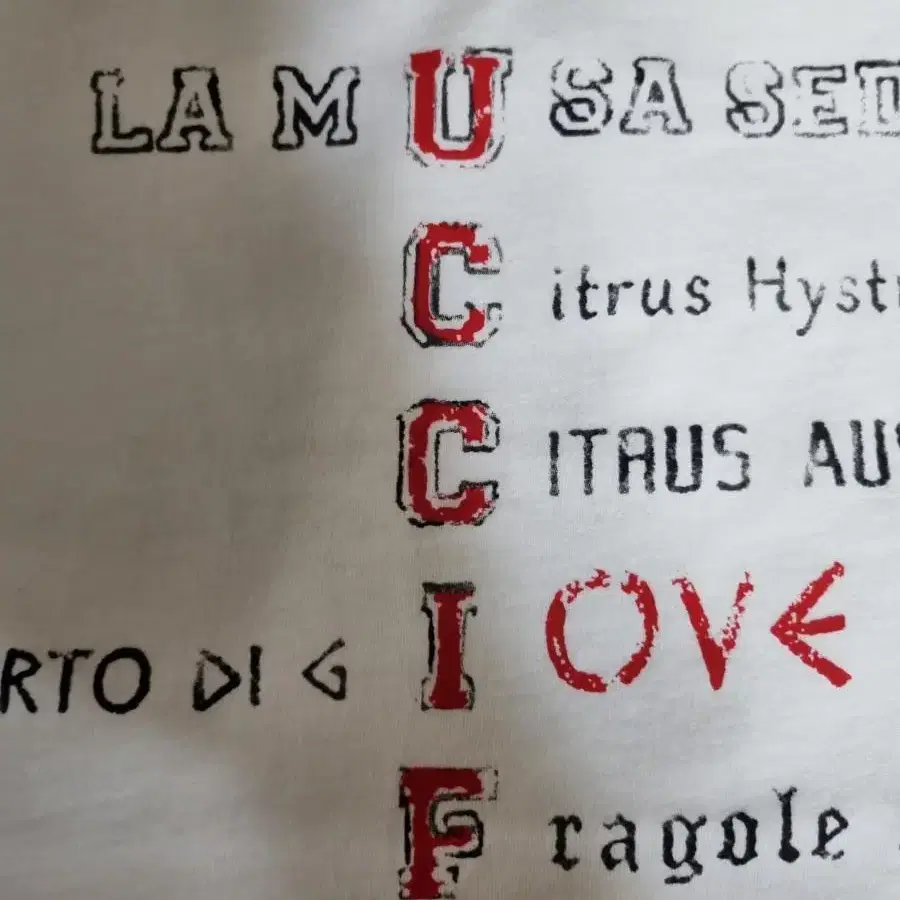 LA MUSA SED
Citrus Hyst
CITRUS AU
RTO DI GIOVE
Fragole